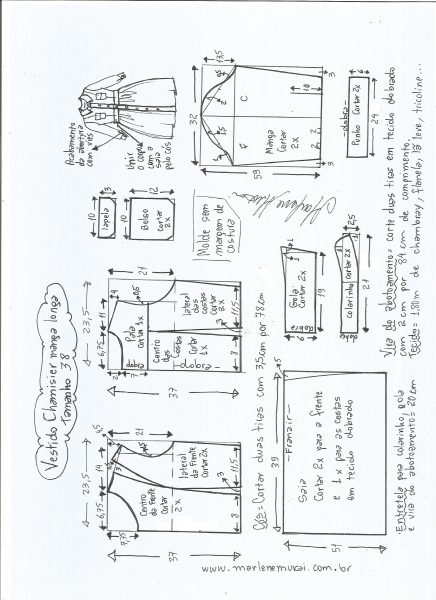 Vestido Chamisier manga longa
Tamanho 38
Acabamento
da abertura
com viés
Unir
corpo
com a
saia
pelo cós
13,5
32
2
C
F
Manga
Cortar
2x
10
2
2
3
3
59
-dobra-
Punho Cortar 2x
6
24
3
10
lapela
12
10
Bolso
cortar
2x
Molde sem
margem de
costura
23,5
6,75
11
4
21
2
7
Pala
Cortar 1x
lateral
das
costas
cortar
2x
Centro
das
Costas
Cortar
1x
-dobra-
8
11,5
37
23,5
6,75
14
4,5
3
9,75
21
Centro
da Frente
Cortar
2x
lateral
da Frente
Cortar 2x
3
8
11,5
37
Cós= Cortar duas tiras com 3,5cm por 78cm
dobra
Gola
Cortar
2x
1
9
19
2,5
colarinho
cortar 2x
1
21
39
1,5
-Franzir-
Saia
Cortar 2x para a frente
e 1x para as costas
em tecido dobrado
51
Vira do abotoamento= corte duas tiras em tecido dobrado
com 2cm por 84 cm de comprimento.
Tecido= 1,80m de chambray, flanela, lã leve, tricoline...
Entretela para colarinho, gola
e vira do abotoamento= 20cm
www.marlenemukai.com.br